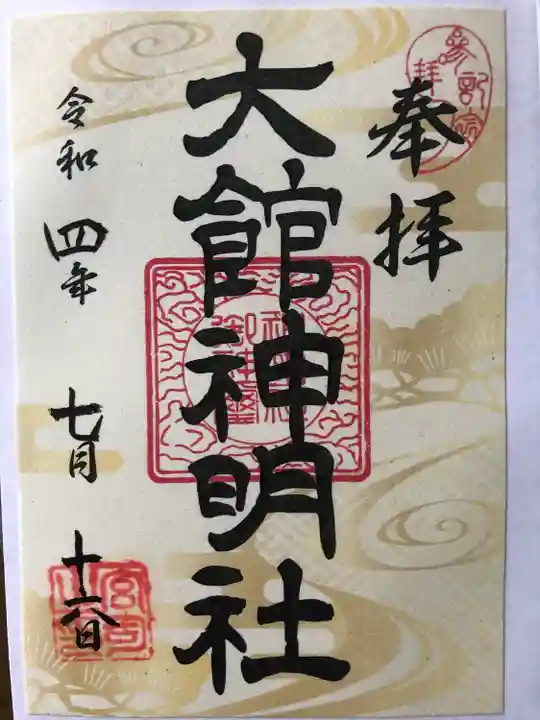 奉拝
大館神明社
令和四年七月十六日